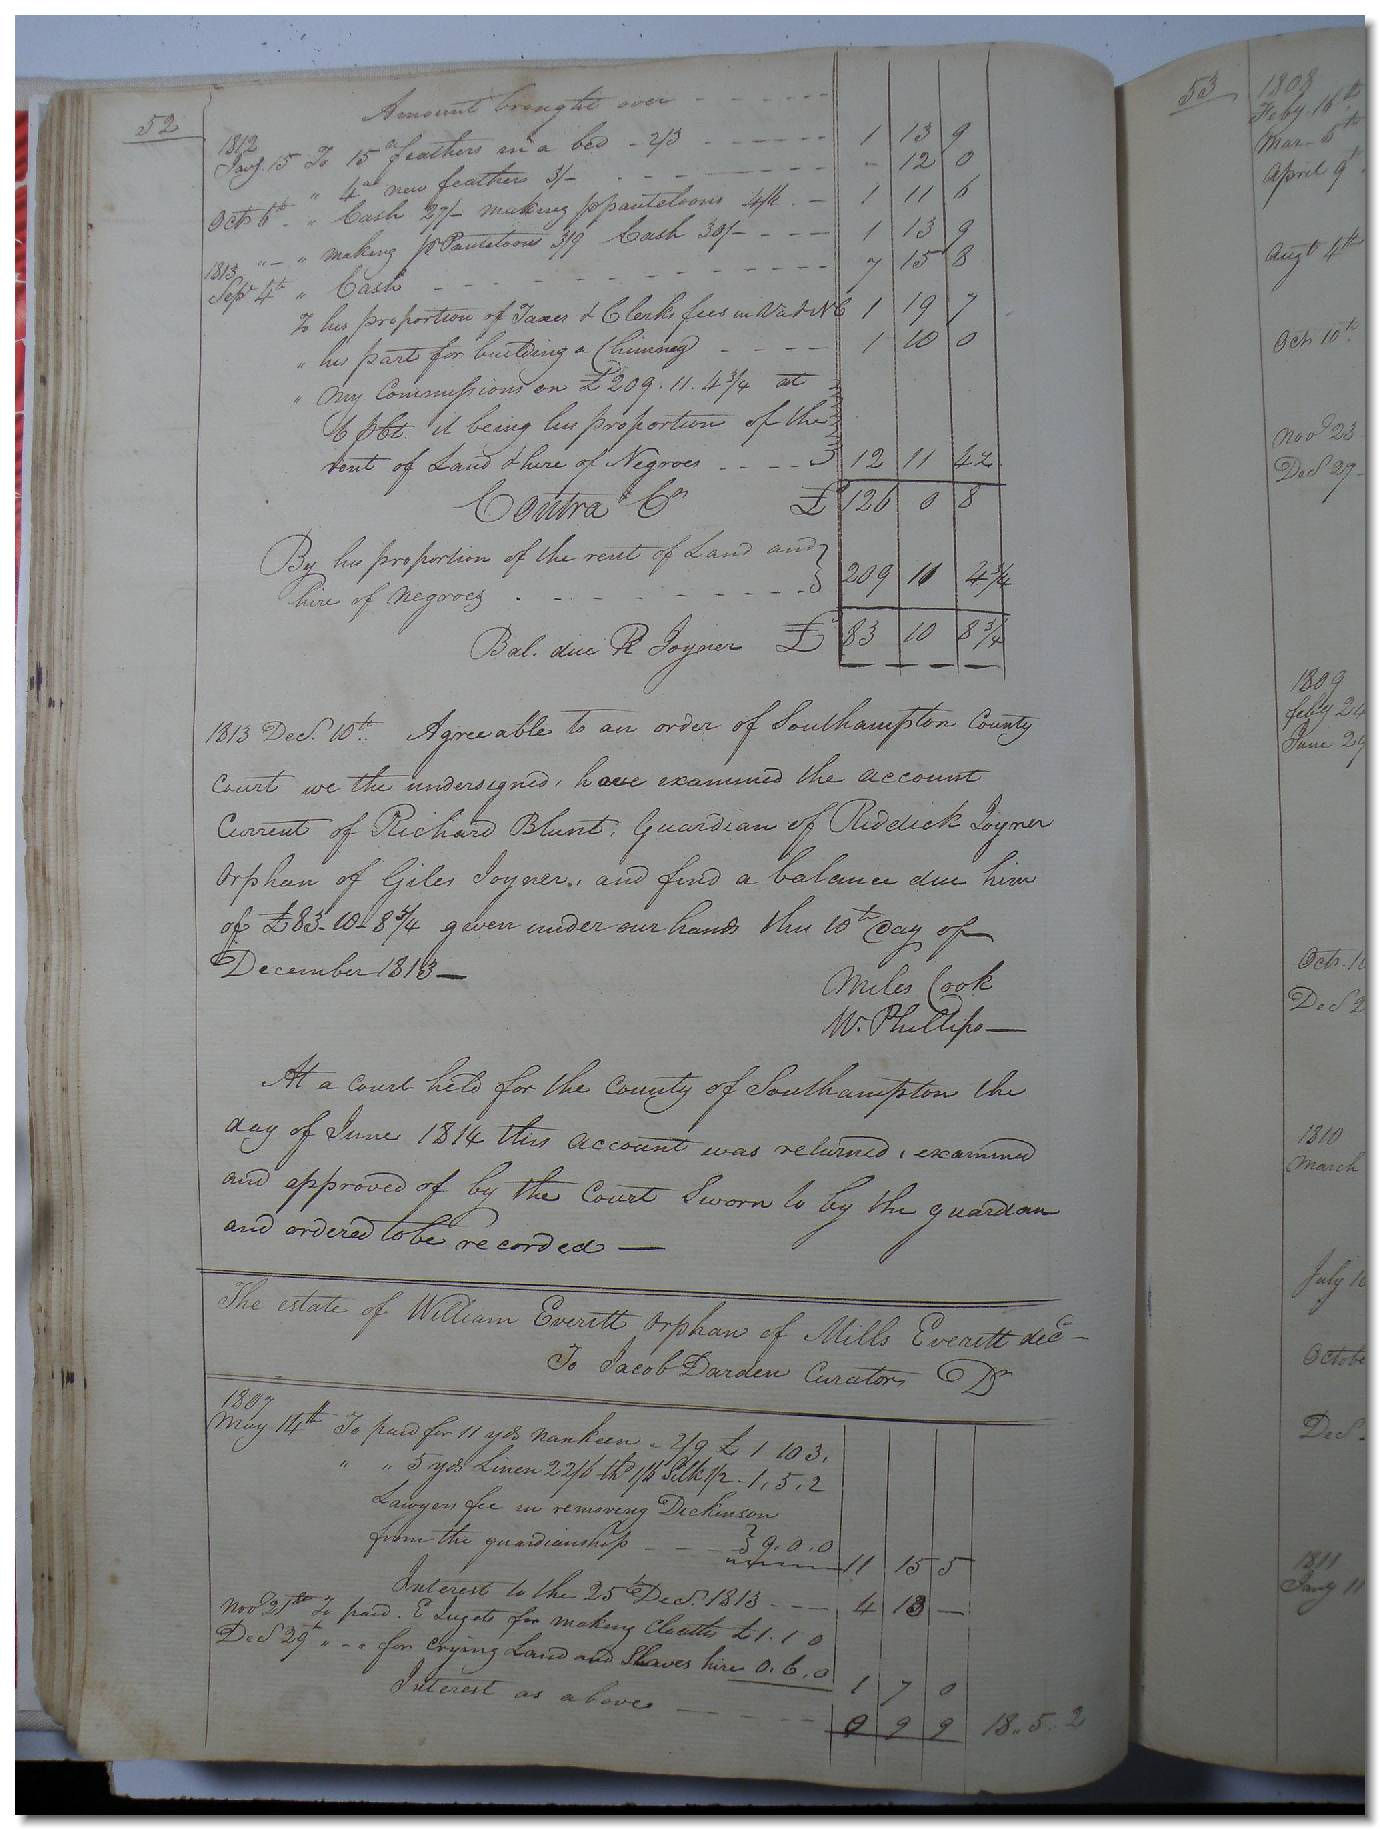 52
Amount brought over - - - - - -
1812
Jany. 15 To 15 lb feathers in a bed - 2/3 - - - - 1 13 9
" 4 lb new feathers 3/- - - - - - - - - 12 0
Octr 6th - " Cash 27/- making pr pantaloons 4/6 . - 1 11 6
" - " making pr Pantaloons 3/9 Cash 30/- - - - - 1 13 9
1813
Sepr 4th " Cash - - - - - - - - - 7 15 8
To his proportion of Taxes & Clerks fees in Va & NC 1 19 7
" his part for building a Chimney - - - - - 1 10 0
" my Commissions on £209.11.4 3/4 at
6 pCt. it being his proportion of the
rent of Land & hire of Negroes - - - - 12 11 4
Contra Cr £ 126 0 8
By his proportion of the rent of Land and
hire of Negroes - - - - - - - 209 11 4 3/4
Bal. due R Joyner £ 83 10 8 3/4
1813 Decr. 10th. Agreeable to an order of Southampton County
Court we the undersigned, have examined the account
Current of Richard Blunt, Guardian of Riddick Joyner
Orphan of Giles Joyner, and find a balance due him
of £83-10-8 3/4 given under our hands this 10th day of
December 1813—
Miles Cook
W. Phillips—
At a court held for the County of Southampton the
day of June 1814 this account was returned, examined
and approved of by the Court Sworn to by the guardian
and ordered to be recorded —
The estate of William Everitt Orphan of Mills Everitt decd -
To Jacob Darden Curator Dr
1807
May 14th To paid for 11 yds nankeen - 2/9 £ 1 10 3.
" " 5 yds Linen 22/6 thd 1/6 Silk 1/2 - 1.5.2
Lawyers fee in removing Dickinson
from the guardianship - - - 9.0.0 11 15 5
Interest to the 25th Decr. 1813 - - - 4 13 —
Novr 21st To paid. E for making Cloaths £1.1 0
Decr 29th " - - for Crying Land and Slaves hire 0.6.0
1 7 0
Interest as above - - - - - - 0 9 9 18.5.2
53
1808
Feby 16th
Mar- 5th
April 9th
Augt 4th
Octr 10th
Novr 23
Decr 27-
1809
feby 24
June 29
Octr. 10
Decr 2
1810
March
July 10
Octobe
Decr -
1811
Jany 11